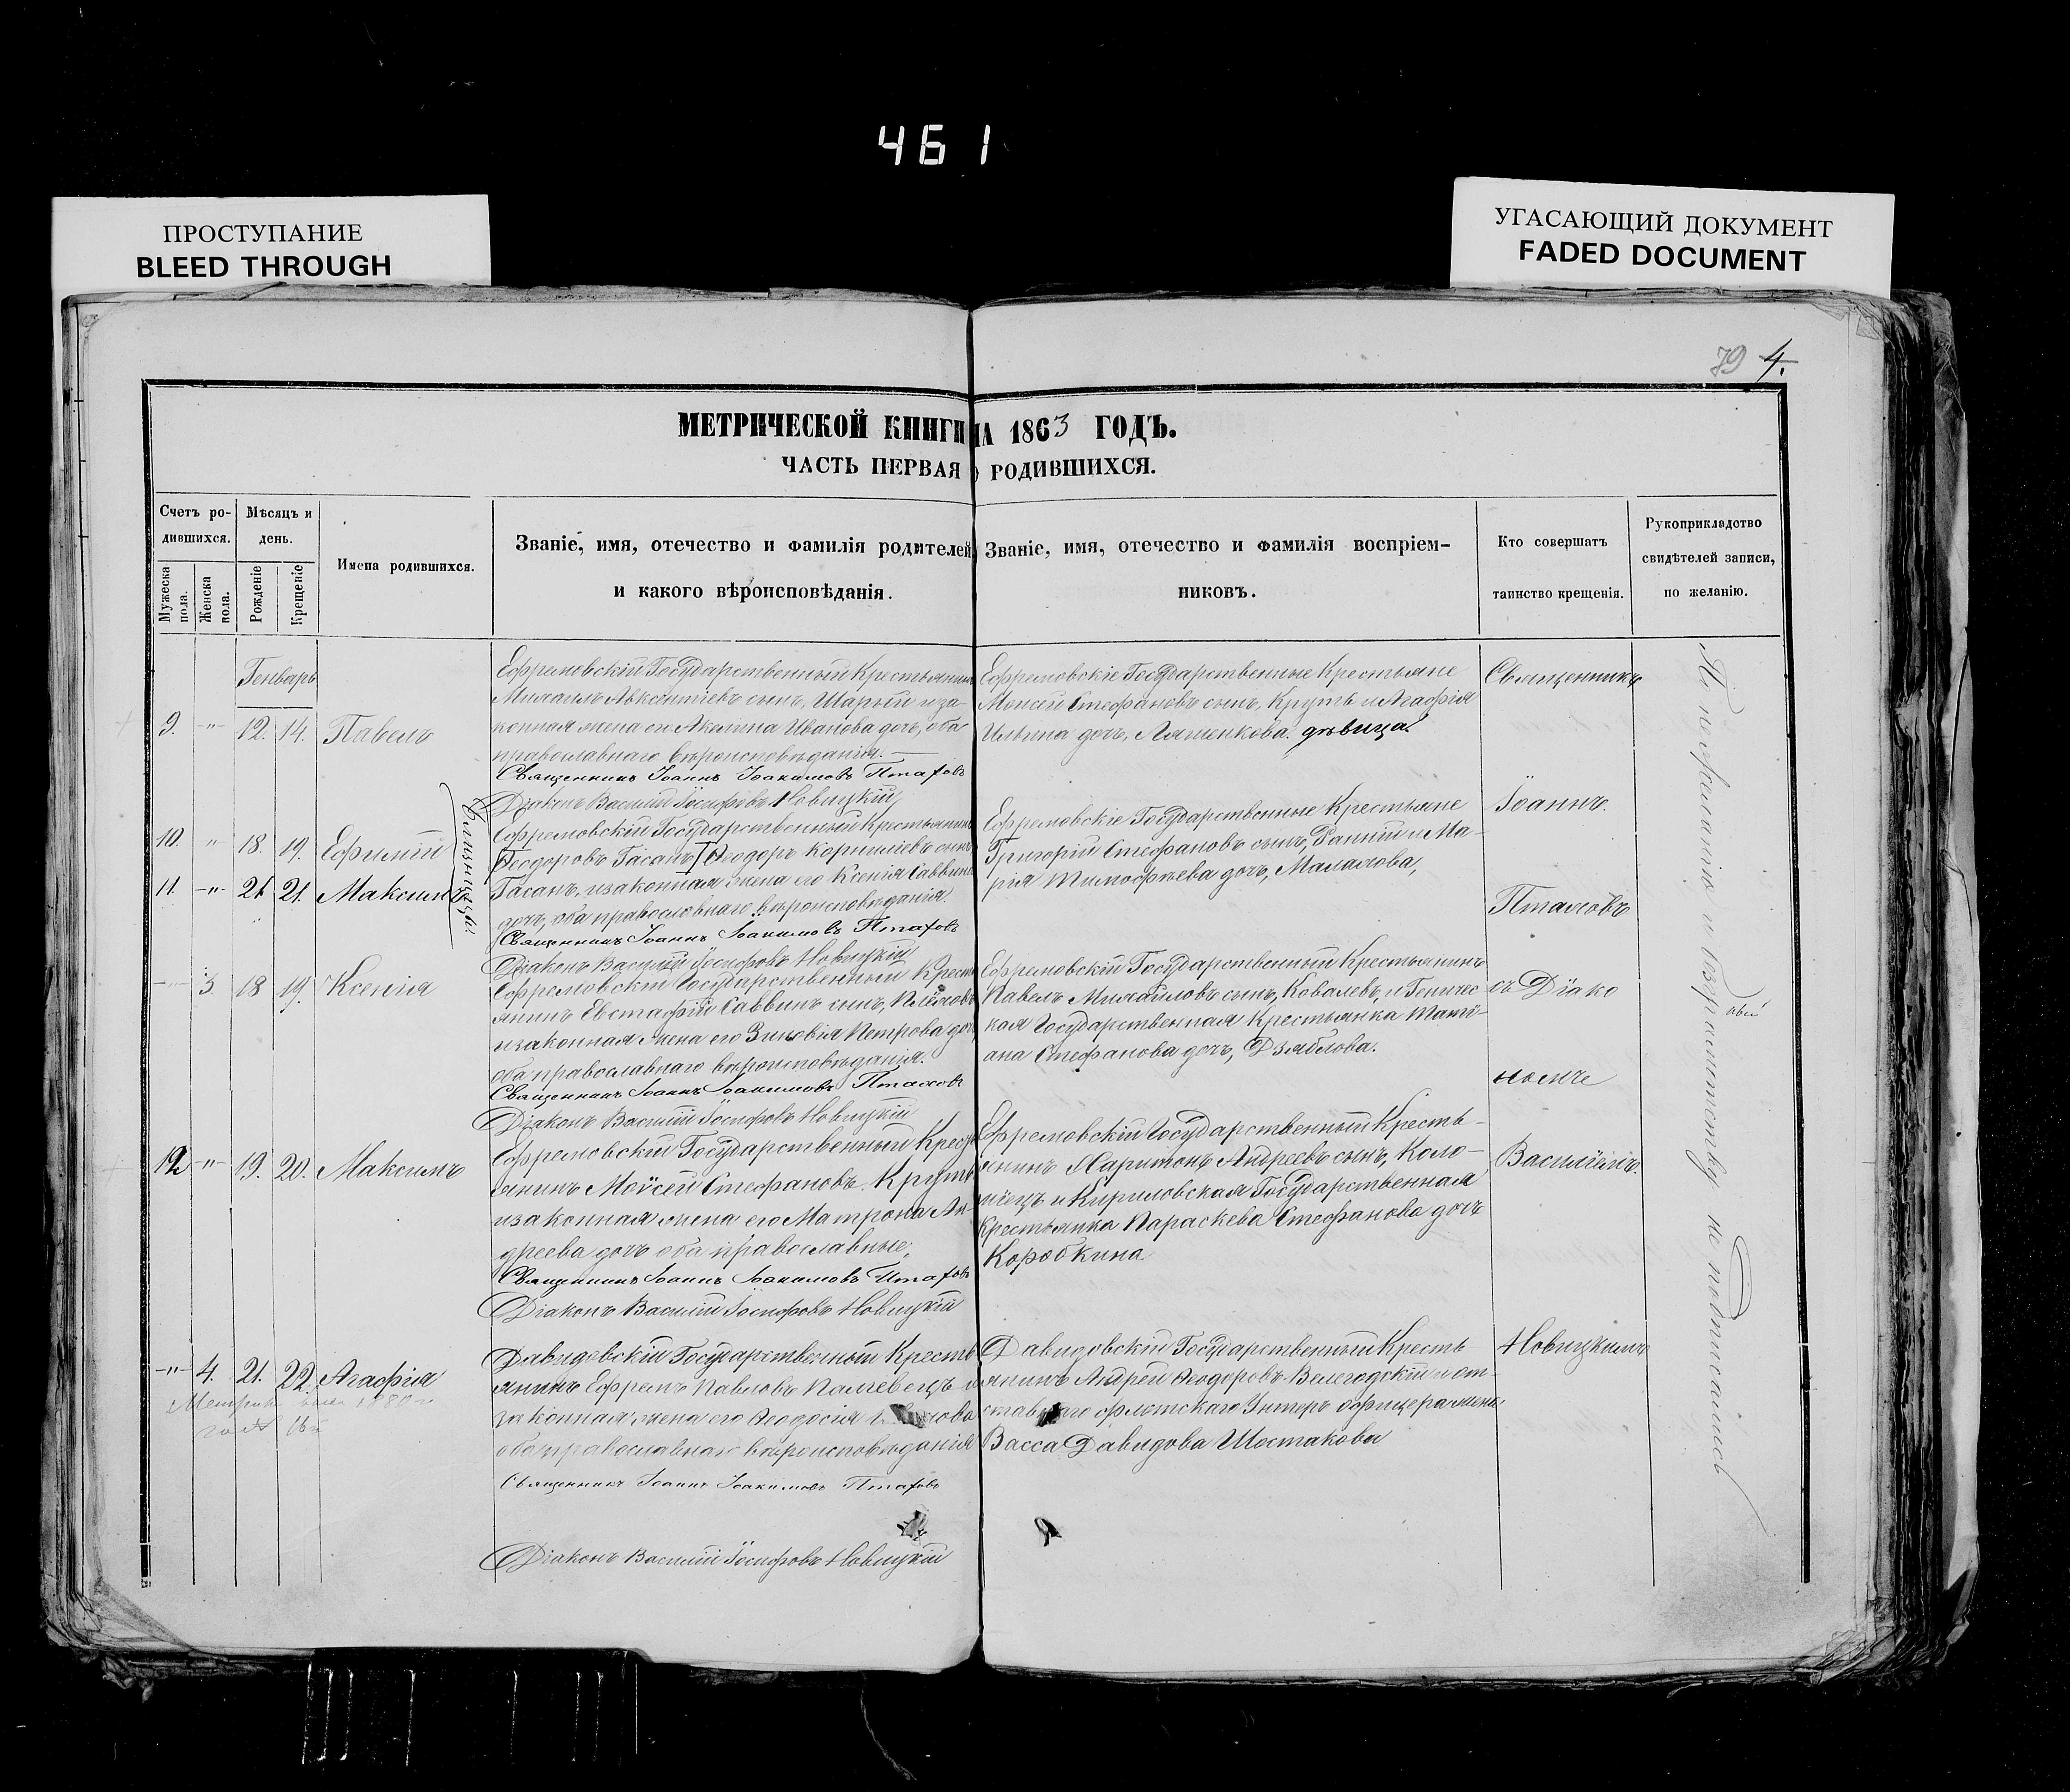 461
ПРОСТУПАНИЕ
BLEED THROUGH
УГАСАЮЩИЙ ДОКУМЕНТ
FADED DOCUMENT
79 4.
МЕТРИЧЕСКОЙ КНИГИ НА 1863 ГОДЪ.
ЧАСТЬ ПЕРВАЯ О РОДИВШИХСЯ.
Счетъ ро-
дившихся.
Мужеска пола.
Женска пола.
Мѣсяцъ и
день.
Рожденіе
Крещеніе
Имена родившихся.
Званіе, имя, отечество и фамилія родителей
и какого вѣроисповѣданія.
Званіе, имя, отечество и фамилія воспріем-
никовъ.
Кто совершалъ
таинство крещенія.
Рукоприкладство
свидѣтелей записи,
по желанію.
Генварь
9. -"- 12. 14. Павелъ
Ефремовскій Государственный Крестьянинъ
Михаилъ Авксентіевъ сынъ, Шарый и за-
конная жена его Акелина Иванова дочь, оба
православнаго вѣроисповѣданія.
Священникъ Іоаннъ Іоакимовъ Птаховъ
Діаконъ Василій Іосифовъ Новицкій
Ефремовскіе Государственные Крестьяне
Моисей Стефановъ сынъ, Круть и Агафія
Ильина дочь, Ляшенкова. дѣвица.
10. " 18. 19. Ефимій
11. -"- 21. 21. Максимъ
Близнецы.
Ефремовскій Государственный Крестьянинъ
Ѳеодоровъ Гасанъ Ѳеодоръ Корниліевъ сынъ
Гасанъ, и законная жена его Ксенія Саввина
дочь, оба православнаго вѣроисповѣданія.
Священникъ Іоаннъ Іоакимовъ Птаховъ
Діаконъ Василій Іосифовъ Новицкій
Ефремовскіе Государственные Крестьяне
Григорій Стефановъ сынъ, и Ма-
рія Тимофѣева дочь, Малахова,
3. 18 19. Ксенія
Ефремовскій Государственный Кресть
янинъ Евстафій Саввинъ сынъ,
и законная жена его Зиновія Петрова дочь,
оба православнаго вѣроисповѣданія.
Священникъ Іоаннъ Іоакимовъ Птаховъ
Діаконъ Василій Іосифовъ Новицкій
Ефремовскій Государственный Крестьянинъ
Павелъ Михайловъ сынъ, Ковалевъ, и Геничес
кая Государственная Крестьянка Татi-
ана Стефанова дочь, Дзяблова.
12 -"- 19. 20. Максимъ
Ефремовскій Государственный Кресть
янинъ Моѵсей Стефановъ Круть
и законная жена его Матрона Ан-
дреева дочь оба православные;
Священникъ Іоаннъ Іоакимовъ Птаховъ
Діаконъ Василій Іосифовъ Новицкій
Ефремовскій Государственный Кресть-
янинъ Харитонъ Андреевъ сынъ, Коло-
міецъ и Кириловская Государственная
Крестьянка Параскева Стефанова дочь
Коробкина.
-"- 4. 21. 22. Агафія
Давидовскій Государственный Кресть
янинъ Ефремъ Павловъ и
законная жена его Ѳеодосія
оба православнаго вѣроисповѣданія
Священникъ Іоаннъ Іоакимовъ Птаховъ
Діаконъ Василій Іосифовъ Новицкій
Давидовскій Государственный Кресть
янинъ Андрей Ѳеодоровъ Велегодскій и от
ставнаго флотскаго Унтеръ офицера жена
Васса Давидова Шостакова
Священникъ
Іоаннъ
Птаховъ
съ Діако
номъ
Василіемъ
Новицкимъ
По нежеланію и безграмотству не подписались